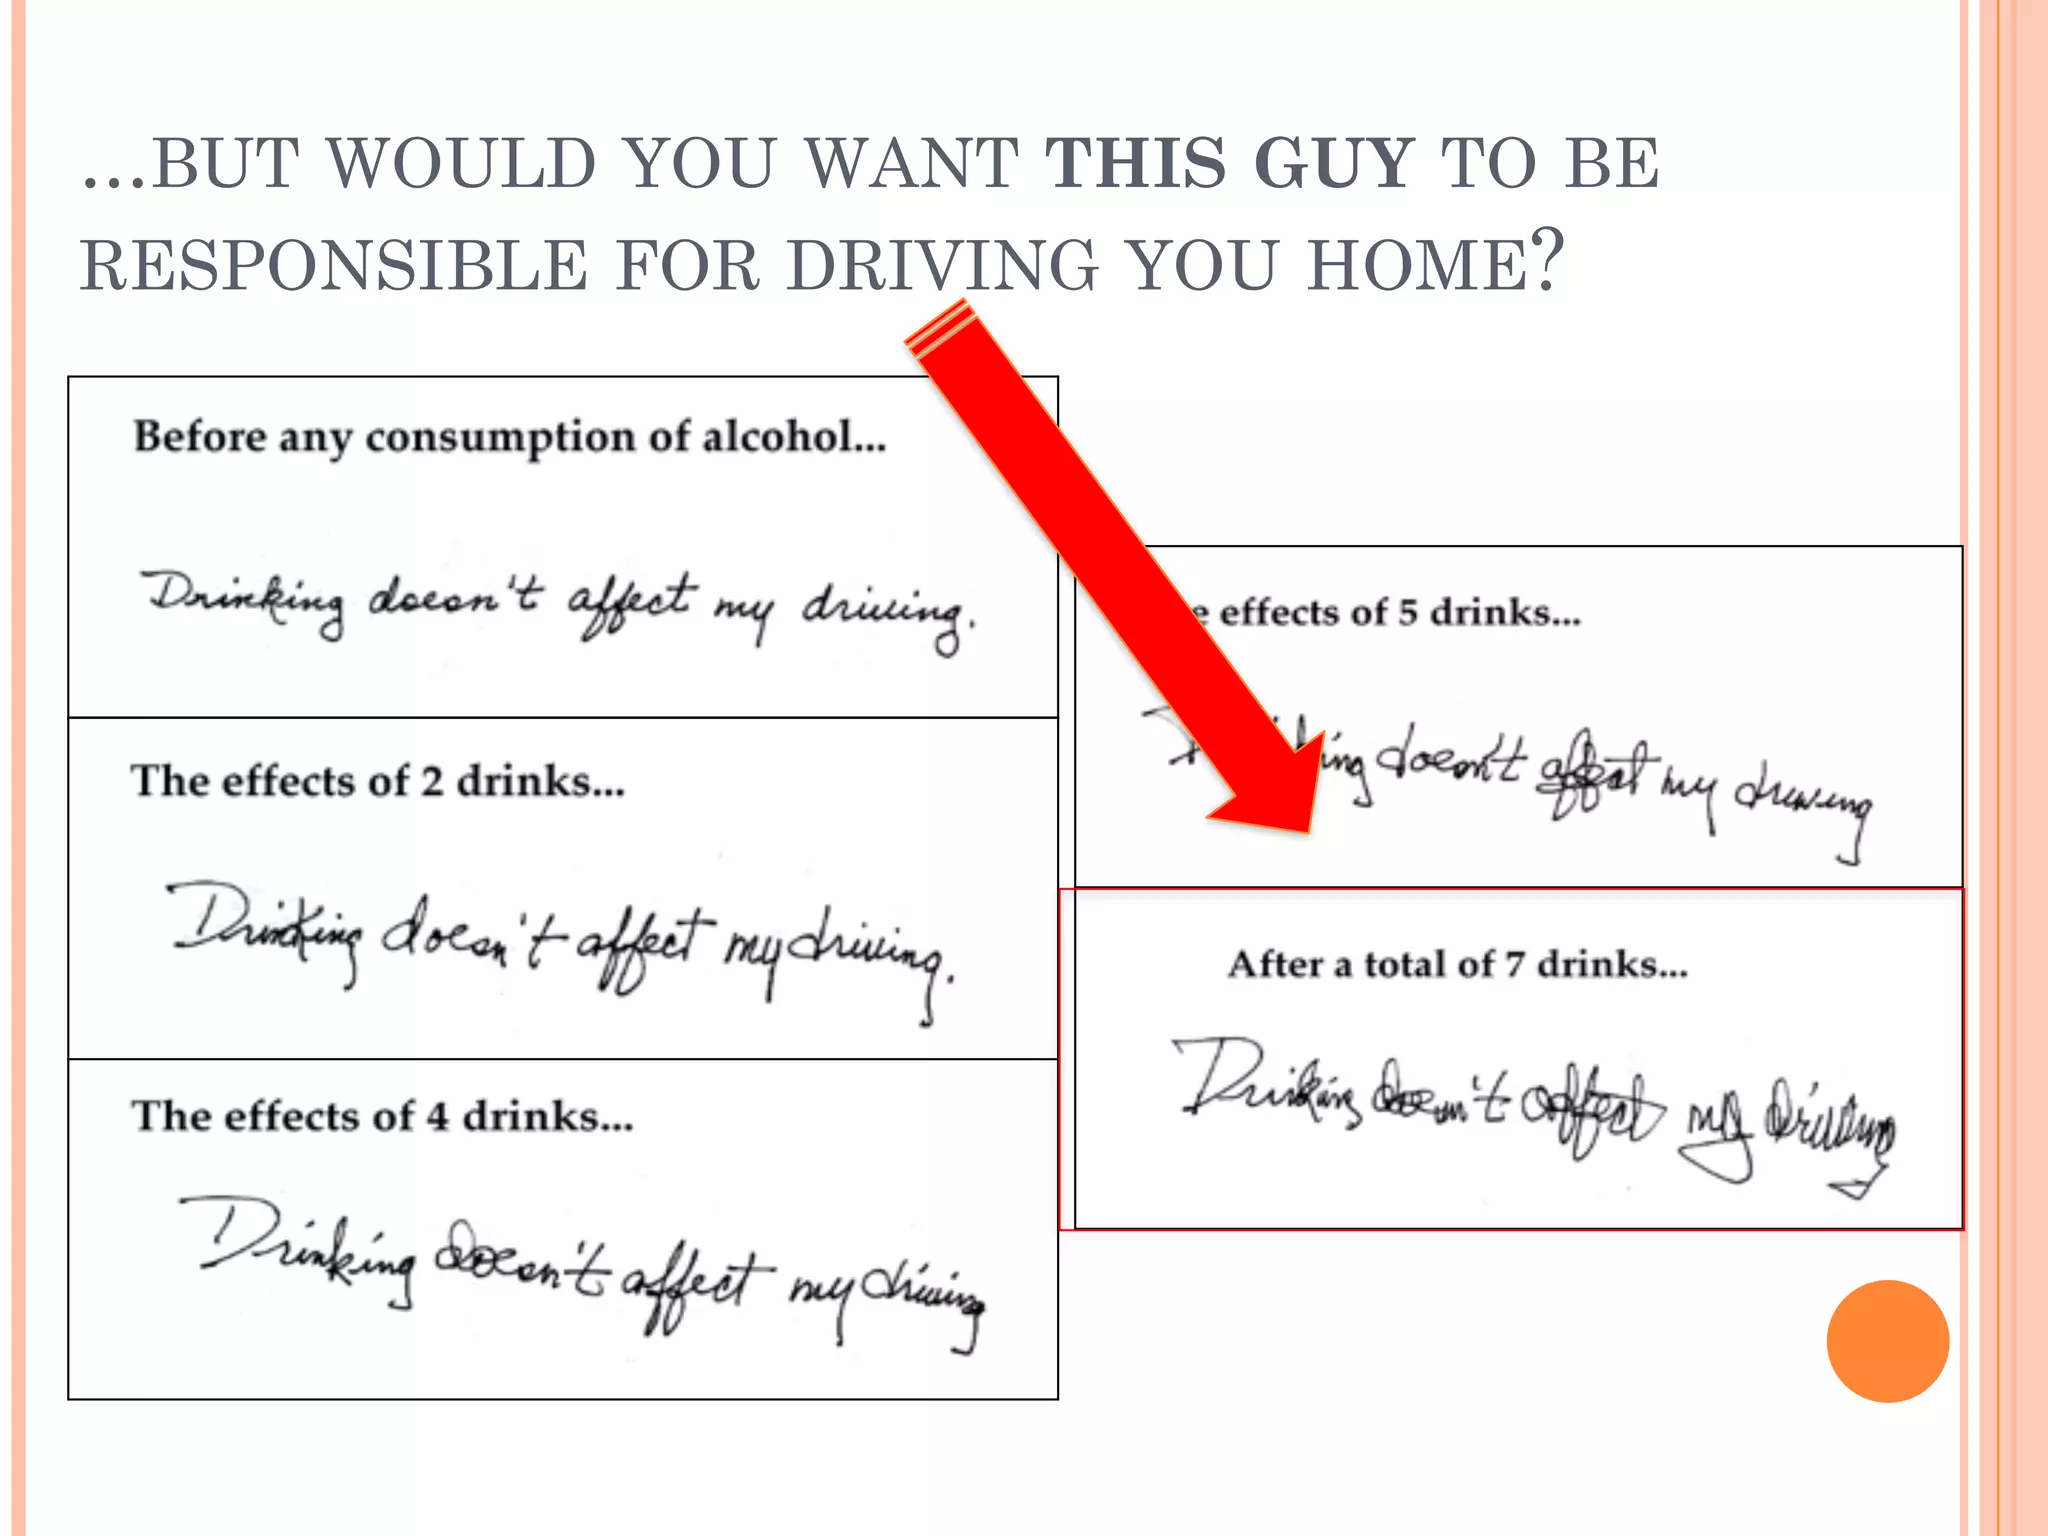 ...BUT WOULD YOU WANT THIS GUY TO BE
RESPONSIBLE FOR DRIVING YOU HOME?
Before any consumption of alcohol...
Drinking doesn't affect my driving.
The effects of 2 drinks...
Drinking doesn't affect my driving.
The effects of 4 drinks...
Drinking doesn't affect my driving
effects of 5 drinks...
doesn't affect my driving
After a total of 7 drinks...
Drinking doesn't affect my driving